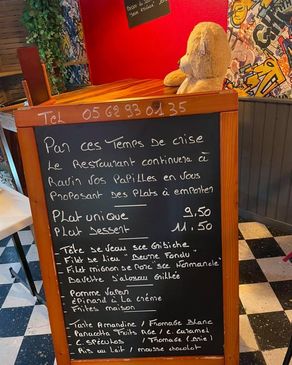 TEL 05 62 93 01 35
Par ces Temps de crise
Le Restaurant continuera à
Ravir vos Papilles en vous
Proposant des Plats à emporter
Plat unique 9,50
Plat Dessert 11.50
- Tête de Veau sce Gribiche
- Filet de Lieu "Beurre Fondu"
- Filet mignon de Porc sce normande
- Bavette d'aloyau Grillée
- Pomme vapeur
- épinard à La crème
- Frites maison
- Tarte Amandine / Fromage Blanc
Panacotta Fruits Rge / C. caramel
C. Spéculos / Fromage (Brie)
Ris au Lait / mousse chocolat